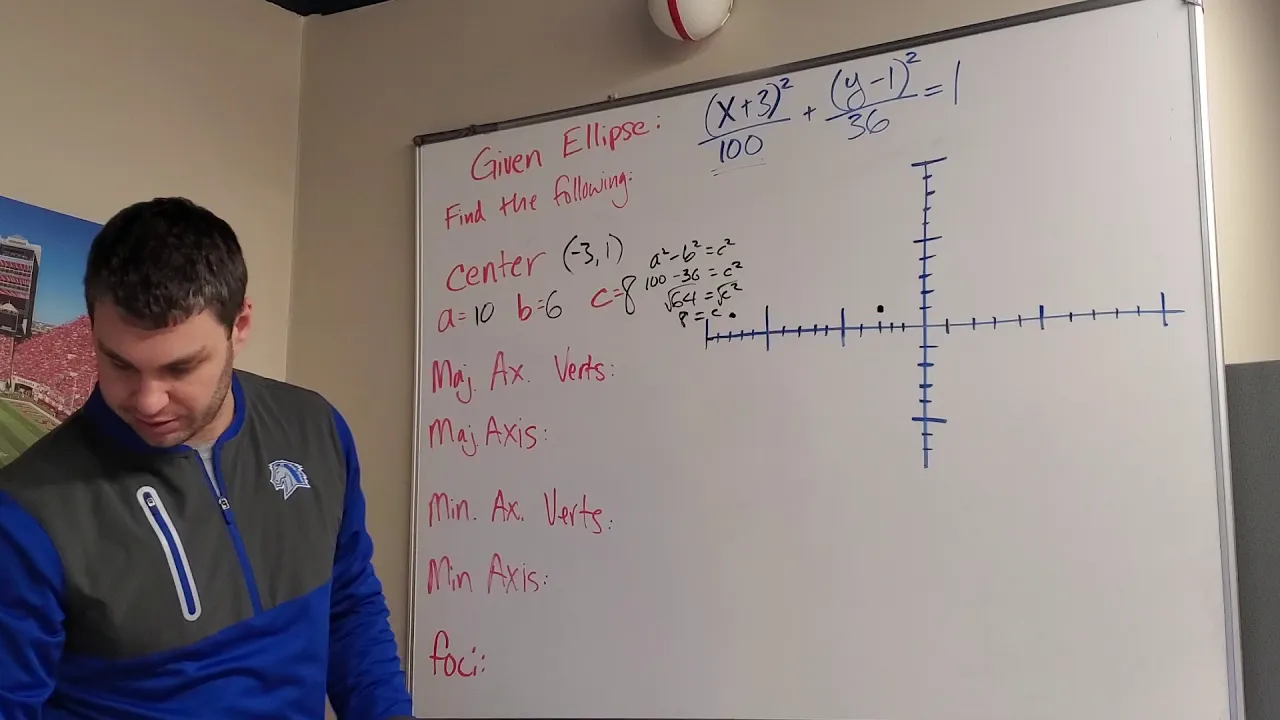 Given Ellipse: (x+3)²/100 + (y-1)²/36 = 1
Find the following:
center (-3,1)
a=10 b=6 c=8
a²-b²=c²
100-36=c²
√64=√c²
8=c
Maj. Ax. Verts:
Maj Axis:
Min. Ax. Verts:
Min Axis:
foci: